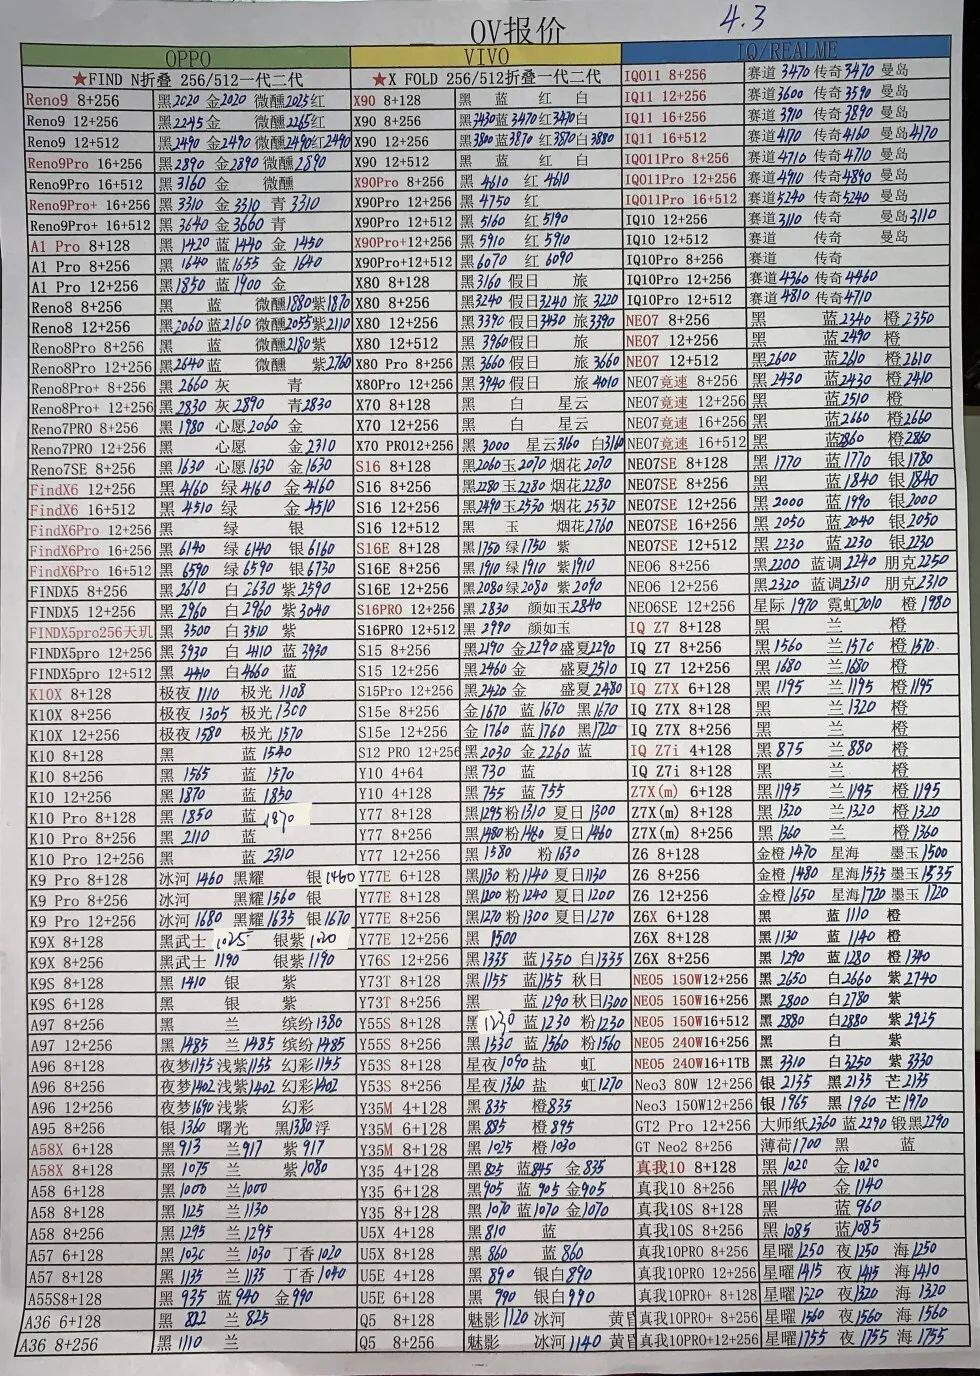 4.3
OV报价
OPPO
★FIND N折叠 256/512一代二代
Reno9 8+256 黑2020 金2020 微醺2025红
Reno9 12+256 黑2245金 微醺2265红
Reno9 12+512 黑2490 金2490 微醺2490红2490
Reno9Pro 16+256 黑2890 金2890 微醺2890
Reno9Pro 16+512 黑3160 金 微醺
Reno9Pro+ 16+256 黑3310 金3310 青3310
Reno9Pro+ 16+512 黑3640 金3660 青
A1 Pro 8+128 黑1420 蓝1440 金1450
A1 Pro 8+256 黑1640 蓝1655 金1640
A1 Pro 12+256 黑1850 蓝1900 金
Reno8 8+256 黑 蓝 微醺1880紫1870
Reno8 12+256 黑2060蓝2160 微醺2055紫2110
Reno8Pro 8+256 黑 蓝 微醺2180紫
Reno8Pro 12+256 黑2640蓝 微醺 紫2760
Reno8Pro+ 8+256 黑2660 灰 青
Reno8Pro+ 12+256 黑2830 灰2890 青2830
Reno7PRO 8+256 黑1980 心愿2060 金
Reno7PRO 12+256 黑 心愿 金2310
Reno7SE 8+256 黑1630 心愿1630 金1630
FindX6 12+256 黑4160 绿4160 金4160
FindX6 16+512 黑4510 绿 金4510
FindX6Pro 12+256 黑 绿 银
FindX6Pro 16+256 黑6140 绿6140 银6160
FindX6Pro 16+512 黑6590 绿6590 银6730
FINDX5 8+256 黑2610 白2630 紫2590
FINDX5 12+256 黑2960 白2960 紫3040
FINDX5pro256天玑 黑3500 白3510 紫
FINDX5pro 12+256 黑3930 白4110 蓝3930
FINDX5pro 12+512 黑4440 白4660 蓝
K10X 8+128 极夜1110 极光1108
K10X 8+256 极夜1305 极光1300
K10X 12+256 极夜1580 极光1570
K10 8+128 黑 蓝1540
K10 8+256 黑1565 蓝1570
K10 12+256 黑1870 蓝1850
K10 Pro 8+128 黑1850 蓝1870
K10 Pro 8+256 黑2110 蓝
K10 Pro 12+256 黑 蓝2310
K9 Pro 8+128 冰河1460 黑耀 银1460
K9 Pro 8+256 冰河 黑耀1560 银
K9 Pro 12+256 冰河1680 黑耀1635 银1670
K9X 8+128 黑武士1025 银紫1020
K9X 8+256 黑武士1190 银紫1190
K9S 8+128 黑1410 银 紫
K9S 6+128 黑 银 紫
A97 8+256 黑 兰 缤纷1380
A97 12+256 黑1485 兰1485 缤纷1485
A96 8+128 夜梦1155浅紫1155 幻彩1155
A96 8+256 夜梦1402浅紫1402 幻彩1402
A96 12+256 夜梦1690浅紫 幻彩
A95 8+256 银1360 曙光 黑1380浮
A58X 6+128 黑913 兰917 紫917
A58X 8+128 黑1075 兰 紫1080
A58 6+128 黑1000 兰1000
A58 8+128 黑1125 兰1130
A58 8+256 黑1295 兰1295
A57 6+128 黑1030 兰1030 丁香1020
A57 8+128 黑1135 兰1135 丁香1040
A55S8+128 黑935 蓝940 金990
A36 6+128 黑822 兰825
A36 8+256 黑1110 兰
VIVO
★X FOLD 256/512折叠一代二代
X90 8+128 黑 蓝 红 白
X90 8+256 黑3430蓝3470红3470白
X90 12+256 黑3800蓝3870红3870白3880
X90 12+512 黑 蓝 红 白
X90Pro 8+256 黑4610 红4610
X90Pro 12+256 黑4750 红
X90Pro 12+512 黑5160 红5190
X90Pro+12+256 黑5910 红5910
X90Pro+12+512 黑6070 红6090
X80 8+128 黑3160 假日 旅
X80 8+256 黑3240 假日3240 旅3220
X80 12+256 黑3390 假日3430 旅3390
X80 12+512 黑3960假日 旅
X80 Pro 8+256 黑3660假日 旅3660
X80Pro 12+256 黑3940假日 旅4010
X70 8+128 黑 白 星云
X70 12+256 黑 白 星云
X70 PRO12+256 黑3000 星云3160 白3160
S16 8+128 黑2060玉2070 烟花2070
S16 8+256 黑2280玉2280 烟花2280
S16 12+256 黑2490玉2530 烟花2530
S16 12+512 黑 玉 烟花2760
S16E 8+128 黑1750绿1750 紫
S16E 8+256 黑1910绿1910 紫1910
S16E 12+256 黑2080绿2080 紫2090
S16PRO 12+256 黑2830 颜如玉2840
S16PRO 12+512 黑2990 颜如玉
S15 8+256 黑2190 金2290盛夏2290
S15 12+256 黑2460 金 盛夏2510
S15Pro 12+256 黑2420 金 盛夏2480
S15e 8+256 金1670 蓝1670 黑1670
S15e 12+256 金1760 蓝1760 黑1720
S12 PRO 12+256 黑2030 金2260 蓝
Y10 4+64 黑730 蓝
Y10 4+128 黑755 蓝755
Y77 8+128 黑1295粉1310 夏日1300
Y77 8+256 黑1480粉1480 夏日1460
Y77 12+256 黑1580 粉1630
Y77E 6+128 黑1130 粉1140 夏日1130
Y77E 8+128 黑1200 粉1240 夏日1200
Y77E 8+256 黑1270 粉1300 夏日1270
Y77E 12+256 黑1500
Y76S 12+256 黑1335 蓝1350 白1335
Y73T 8+128 黑1155 蓝1155 秋日
Y73T 8+256 黑 蓝1290 秋日1300
Y55S 8+128 黑1230 蓝1230 粉1230
Y55S 8+256 黑1530 蓝1560 粉1560
Y53S 8+128 星夜1090盐 虹
Y53S 8+256 星夜1360盐 虹1270
Y35M 4+128 黑835 橙835
Y35M 6+128 黑885 橙895
Y35M 8+128 黑1025 橙1030
Y35 4+128 黑825 蓝845 金835
Y35 6+128 黑905 蓝905 金905
Y35 8+128 黑1070 蓝1070 金1070
U5X 4+128 黑810 蓝
U5X 8+128 黑860 蓝860
U5E 4+128 黑890 银白890
U5E 6+128 黑990 银白990
Q5 8+128 魅影1120冰河 黄昏
Q5 8+256 魅影 冰河1140 黄昏
IQ/REALME
IQO11 8+256 赛道3470传奇3470 曼岛
IQ11 12+256 赛道3600 传奇3590 曼岛
IQ11 16+256 赛道3910 传奇3890 曼岛
IQ11 16+512 赛道4170 传奇4160 曼岛4170
IQO11Pro 8+256 赛道4710传奇4710 曼岛
IQO11Pro 12+256 赛道4910传奇4890 曼岛
IQO11Pro 16+512 赛道5240传奇5240 曼岛
IQ10 12+256 赛道3110 传奇 曼岛3110
IQ10 12+512 赛道 传奇 曼岛
IQ10Pro 8+256 赛道 传奇
IQ10Pro 12+256 赛道4360传奇4460
IQ10Pro 12+512 赛道4810传奇4710
NEO7 8+256 黑 蓝2340 橙2350
NEO7 12+256 黑 蓝2490 橙
NEO7 12+512 黑2600 蓝2610 橙2610
NEO7竞速 8+256 黑2430 蓝2430 橙2410
NEO7竞速 12+256 黑 蓝2510 橙
NEO7竞速 16+256 黑 蓝2660 橙2660
NEO7竞速 16+512 黑 蓝2860 橙2860
NEO7SE 8+128 黑1770 蓝1770 银1780
NEO7SE 8+256 黑 蓝1840 银1840
NEO7SE 12+256 黑2000 蓝1990 银2000
NEO7SE 16+256 黑2050 蓝2040 银2050
NEO7SE 12+512 黑2230 蓝2230 银2230
NEO6 8+256 黑2200 蓝调2240 朋克2250
NEO6 12+256 黑2320 蓝调2310 朋克2310
NEO6SE 12+256 星际1970 霓虹2010 橙1980
IQ Z7 8+128 黑 兰 橙
IQ Z7 8+256 黑1560 兰1570 橙1570
IQ Z7 12+256 黑1680 兰1680 橙
IQ Z7X 6+128 黑1195 兰1195 橙1195
IQ Z7X 8+128 黑 兰1320 橙
IQ Z7X 8+256 黑 兰 橙
IQ Z7i 4+128 黑875 兰880 橙
IQ Z7i 8+128 黑 兰 橙
Z7X(m) 6+128 黑1195 兰1195 橙1195
Z7X(m) 8+128 黑1320 兰1320 橙1320
Z7X(m) 8+256 黑1360 兰 橙1360
Z6 8+128 金橙1470 星海 墨玉1500
Z6 8+256 金橙1480 星海1535墨玉1535
Z6 12+256 金橙1650 星海1720墨玉1720
Z6X 6+128 黑 蓝1110 橙
Z6X 8+128 黑1130 蓝1140 橙
Z6X 8+256 黑1290 蓝1280 橙1340
NEO5 150W12+256 黑2650 白2660 紫2740
NEO5 150W16+256 黑2800 白2780 紫
NEO5 150W16+512 黑2880 白2880 紫2925
NEO5 240W16+256 黑 白 紫
NEO5 240W16+1TB 黑3310 白3250 紫3330
Neo3 80W 12+256 银2135 黑2135 芒2135
Neo3 150W12+256 银1965 黑1960 芒1970
GT2 Pro 12+256 大师纸2360 蓝2290 锻黑2290
GT Neo2 8+256 薄荷1700 黑 蓝
真我10 8+128 黑1020 金1020
真我10 8+256 黑1140 金1140
真我10S 8+128 黑 蓝960
真我10S 8+256 黑1085 蓝1085
真我10PRO 8+256 星曜1250 夜1250 海1250
真我10PRO 12+256 星曜1415 夜1415 海1410
真我10PRO+ 8+128 星曜1320 夜1320 海1320
真我10PRO+ 8+256 星曜1560 夜1560 海1560
真我10PRO+12+256 星曜1755 夜1755 海1755